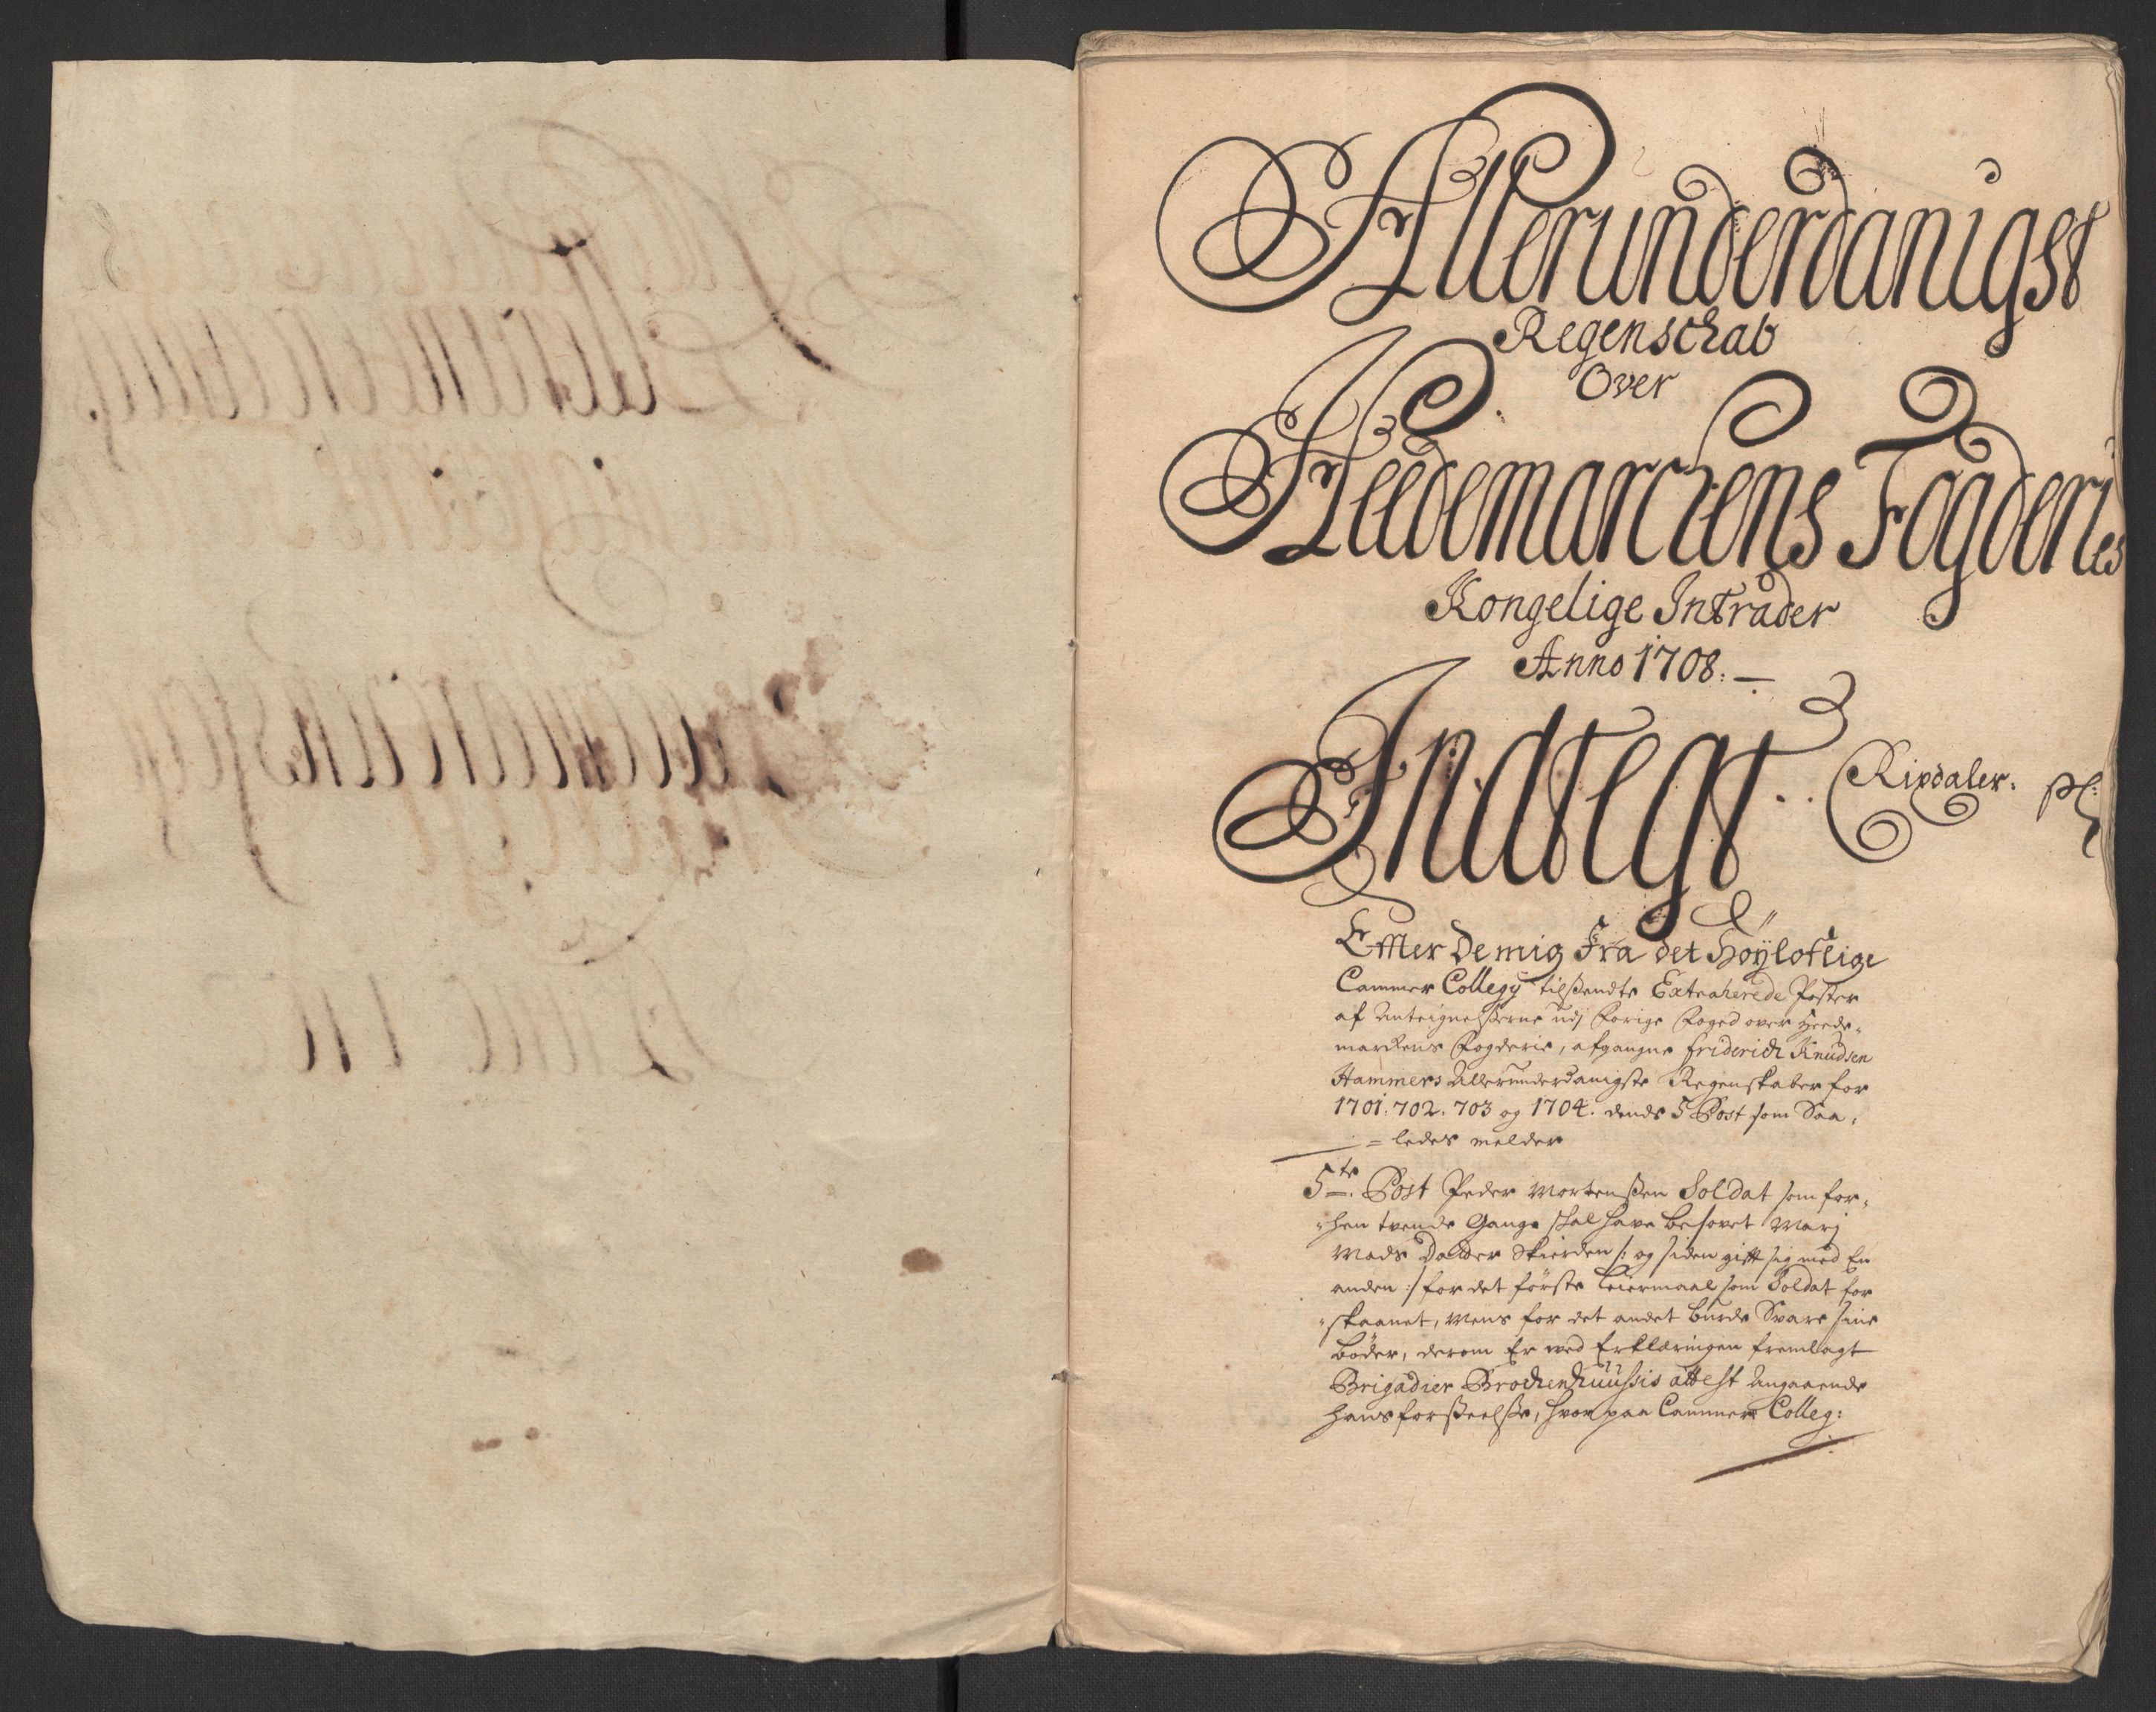 Allerunderdanigst
Regenschab
Over
Heedemarchens Fogderies
Kongelige Intrader
Anno 1708. —
Indtegt . . Rixdaler. ſſ:
Effter De mig Fra det Høyloflige
Cammer Collegy tilsendte Extraherede Poster
af Anteignelserne udj forige foged over Heede„
markens fogderie, afgangne Friderich Knudsen
Hammers Allerunderdanigste Regenskaber for
1701. 702. 703 og 1704. dends 5 Post som Saa„
= ledes melder
5te. Post Peder Mortenssen Soldat som for„
„hen tvende Gange skal have besovet Marj
Mads Datter Skierden /: og siden gifft sig med En
anden :/ for det første Leiermaal som Soldat for
„skaanet, Mens for det andet burde Svare sine
Bøder, derom Er med Erklæringen fremlagt
Brigadier Brochenhuussis attest Angaaende
hans forseelse, hvor paa Cammer Colleg: